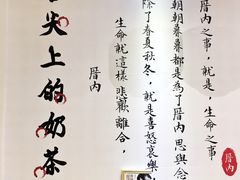 厝內之事，就是 生命之事
朝朝暮暮都是為了厝內 思與念
除了春夏秋冬，就是喜怒哀樂
生命就這樣 悲歡離合，
厝內
尖上的奶茶
厝內